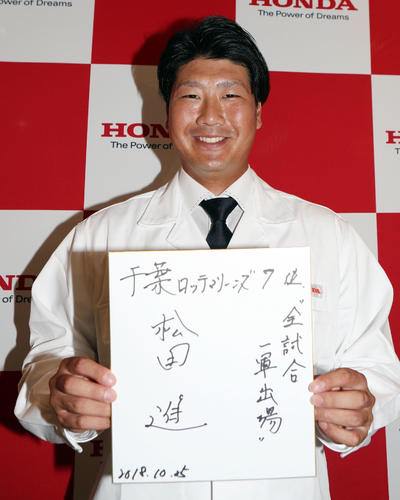 HONDA
The Power of Dreams
Power of Dreams
HON
The Power
H
The
NDA
of Dreams
千葉ロッテマリーンズ7位
“全試合
一軍出場”
松田
進
2018.10.25